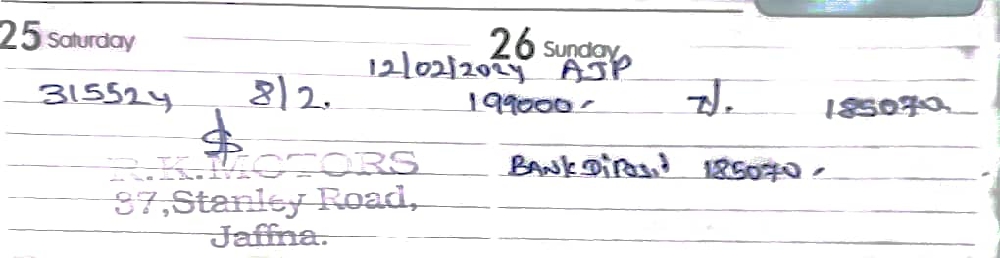 25 Saturday
26 Sunday
12/02/2024 AJP
315524 8/2. 199000/- 7/. 185070
R.K.MOTORS
BANK Diposit 185070/-
37,Stanley Road,
Jaffna.